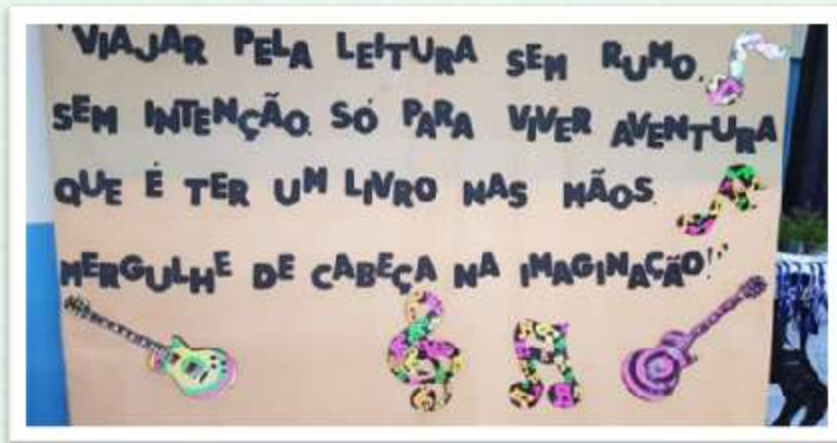 "VIAJAR PELA LEITURA SEM RUMO,
SEM INTENÇÃO. SÓ PARA VIVER AVENTURA
QUE É TER UM LIVRO NAS MÃOS.
MERGULHE DE CABEÇA NA IMAGINAÇÃO!"